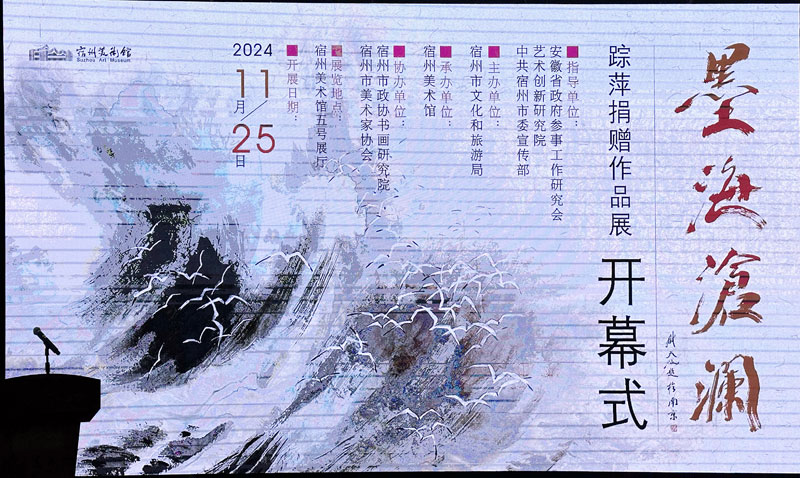 墨海沧澜
踪萍捐赠作品展
开幕式
指导单位：
安徽省政府参事工作研究会
艺术创新研究院
中共宿州市委宣传部
主办单位：
宿州市文化和旅游局
承办单位：
宿州美术馆
协办单位：
宿州市政协书画研究院
宿州市美术家协会
展览地点：
宿州美术馆五号展厅
开展日期：
2024
11月/
25日
宿州美術館
Suzhou Art Museum